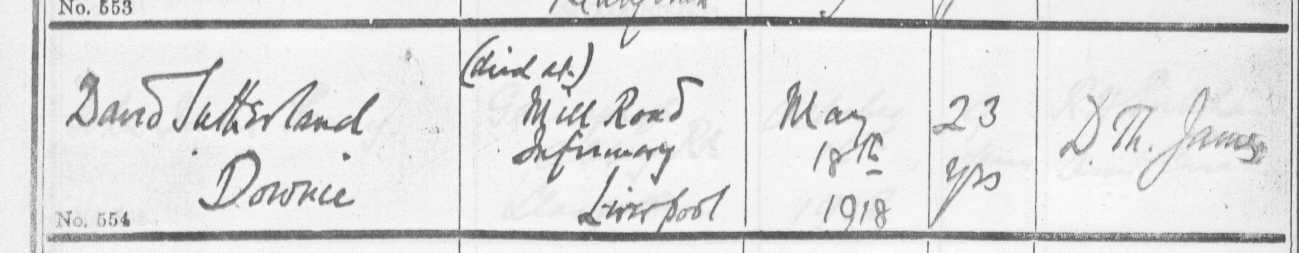 No. 553
David Sutherland
Downie
No. 554
(died at.)
Mill Road
Infirmary
Liverpool
May
18th
1918
23
yrs
D Th. James